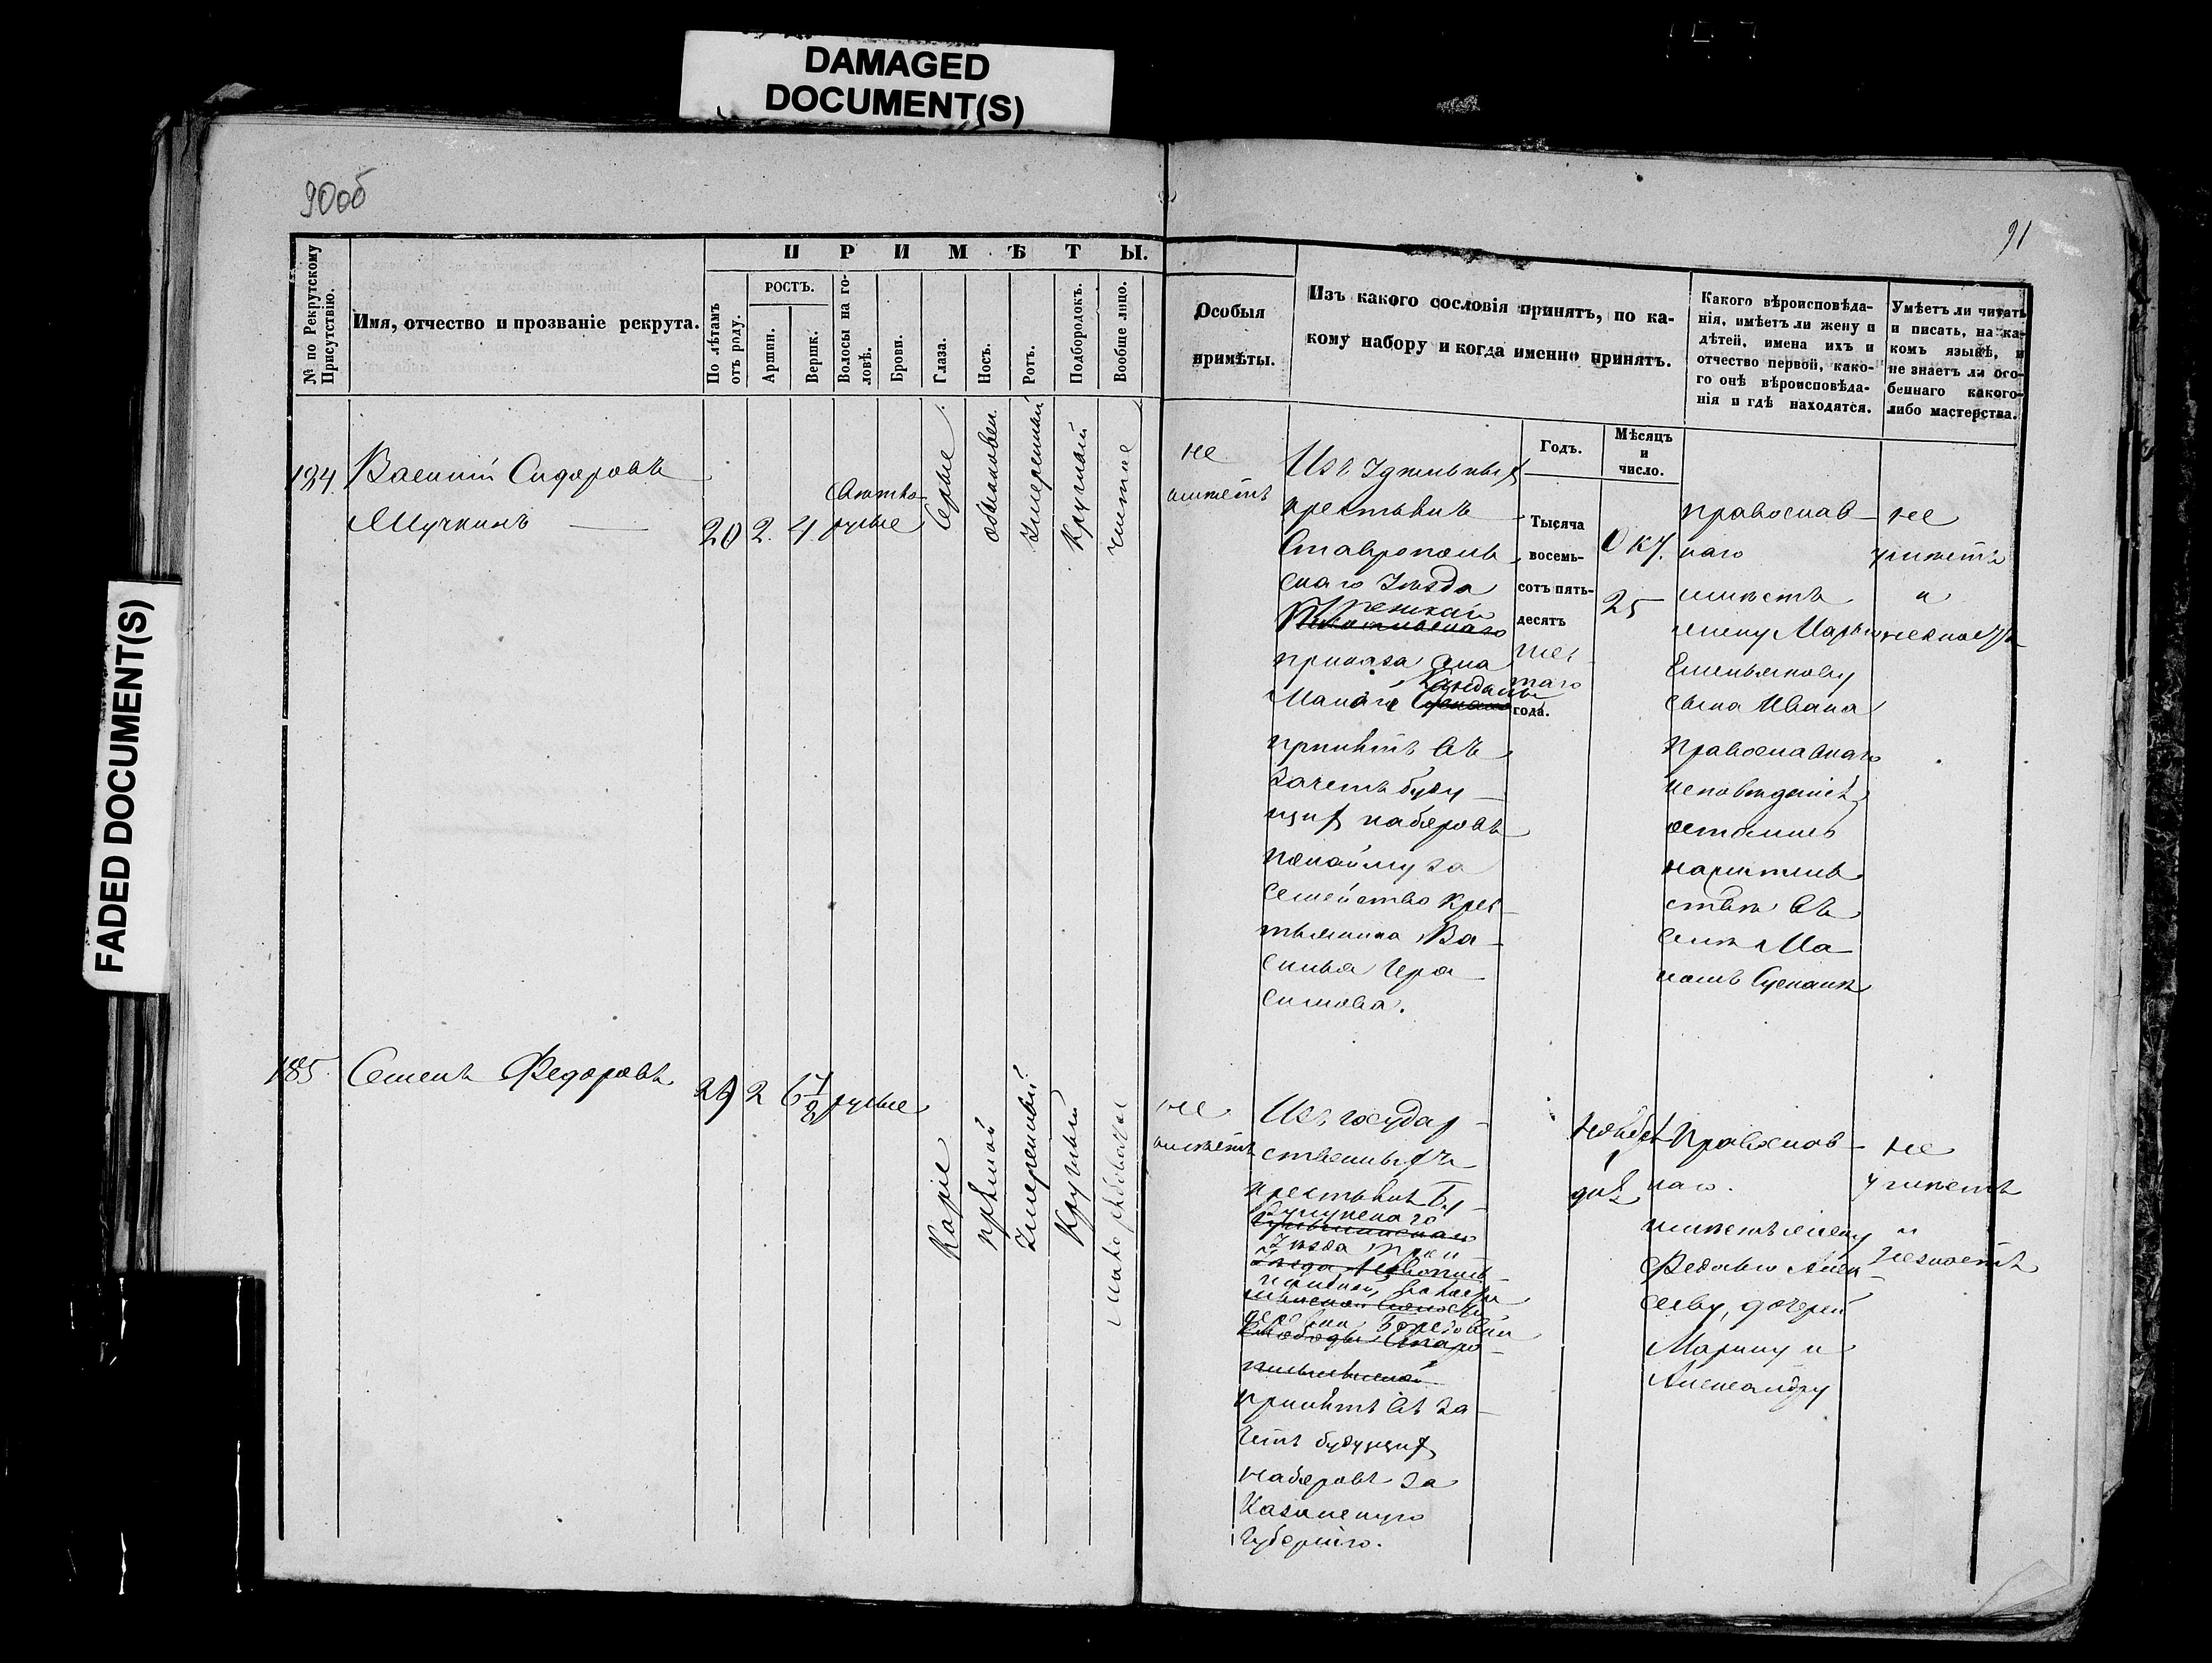 DAMAGED
DOCUMENT(S)
FADED DOCUMENT(S)
90об
91
№ по Рекрутскому
Присутствію.
Имя, отчество и прозваніе рекрута.
ПРИМѢТЫ.
По лѣтамъ
отъ роду.
РОСТЪ.
Аршин.
Вершк.
Волосы на го-
ловѣ.
Брови.
Глаза.
Носъ.
Ротъ.
Подбородокъ.
Вообще лицо.
Особыя
примѣты.
Изъ какого сословія принятъ, по ка-
кому набору и когда именно принятъ.
Годъ.
Мѣсяцъ
и
число.
Какого вѣроисповѣда-
нія, имѣетъ ли жену и
дѣтей, имена ихъ и
отчество первой, како-
го онѣ вѣроисповѣда-
нія и гдѣ находятся.
Умѣетъ ли читать
и писать, на ка-
комъ языкѣ, и
не знаетъ ли осо-
беннаго какого-
либо мастерства.
184
Василій Сидоровъ
Мучкинъ
20
2
4
свѣтло
русые
Сѣрые
обыкновен
Умеренный
Круглый
чистое
не
имѣетъ
Изъ Удѣльныхъ
крестьянъ
Ставрополь
скаго Уѣзда
приказа села
Малой Кандалы
принятъ въ
зачетъ буду
щихъ наборовъ
понайму за
семейство крес
тьянина Ва
силья Гера
симова.
Тысяча
восемь-
сотъ пять-
десятъ
шес
таго
года.
Окт.
25
православ
наго
имѣетъ
жену Марью
Емельянову
сына Ивана
православнаго
исповѣданія
остались
на жительствѣ въ
селѣ Ма
не
умѣетъ
и
незнаетъ
185
Семенъ Федоровъ
29
2
6 1/8
русые
Каріе
прямой
Умеренный
Круглый
не
имѣетъ
Изъ государ
ственныхъ
крестьянъ Бу
гурускаго
Уѣзда
деревни
принятъ въ за
четъ будущихъ
наборовъ за
Казанскую
Губернію.
Ноября
Православ
наго.
имѣетъ жену
Федосью Алек
севу, дочерей
Марину и
Александру
не
умѣетъ
и
незнаетъ